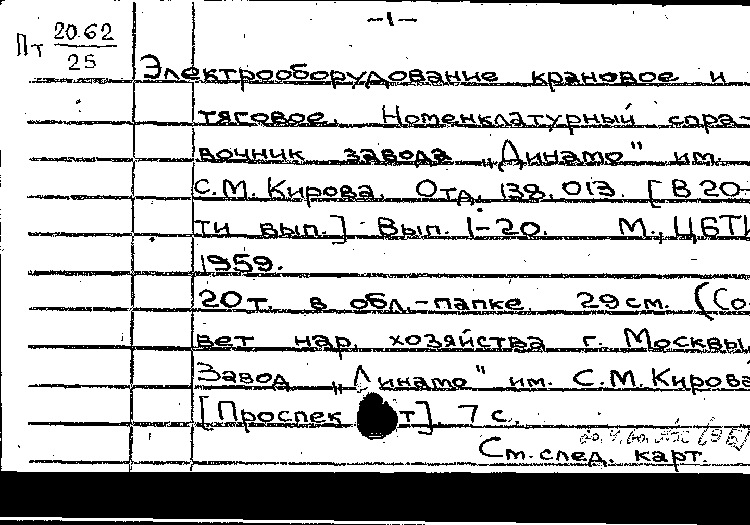 -1-
Пт 20.62
25
Электрооборудование крановое и
тяговое. Номенклатурный спра-
вочник завода „Динамо" им.
С.М.Кирова. Отд. 138.013. [В 20-
ти вып.] Вып. 1-20. М., ЦБТИ
1959.
20т. в обл.-папке. 29см. (Со
вет нар. хозяйства г. Москвы.
Завод „Динамо" им. С.М.Кирова
[Проспек т]. 7 с.
См.след. карт.